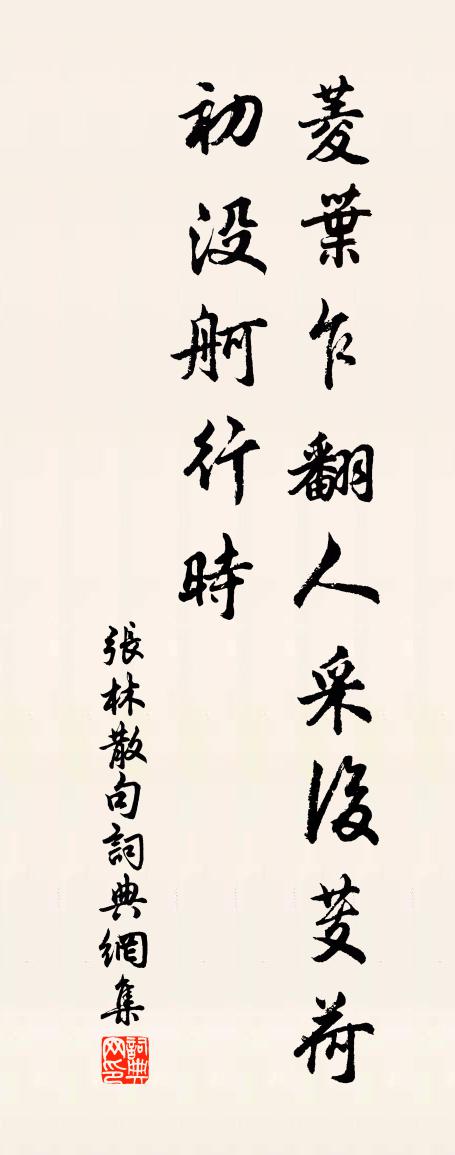 菱葉乍翻人采後芰荷
初没舸行時
張林散句詞典網集
詞典网印